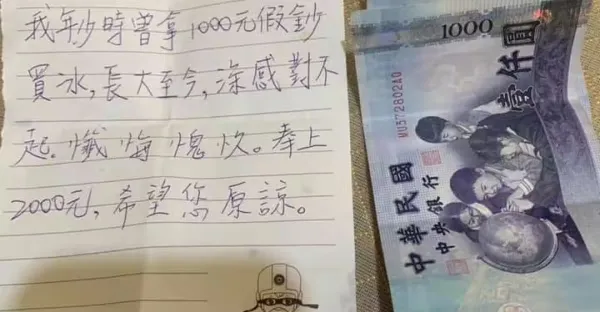 我年少時曾拿1000元假鈔
買冰,長大至今,深感對不
起。懺悔愧疚。奉上
2000元,希望您原諒。
1000
壹仟圓
MU572802AQ
中華民國
中央銀行